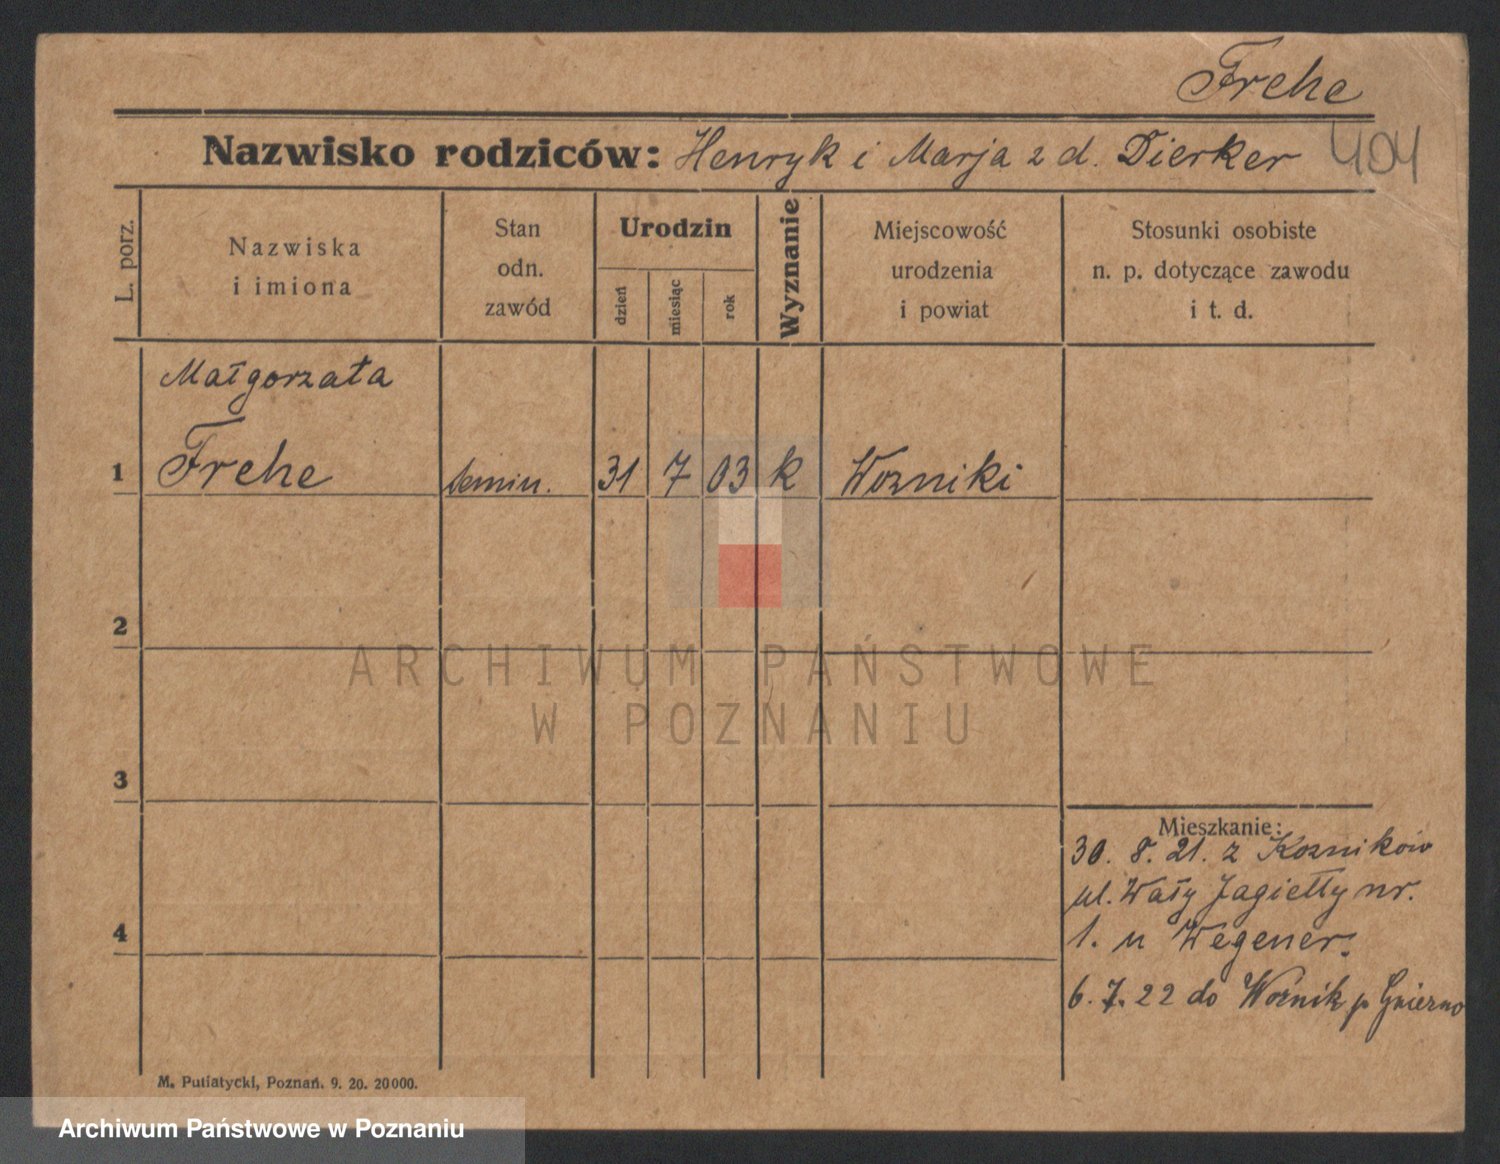 Frehe
Nazwisko rodziców: Henryk i Marja z d. Dierker 404
L. porz.
Nazwiska
i imiona
Stan
odn.
zawód
Urodzin
dzień
miesiąc
rok
Wyznanie
Miejscowość
urodzenia
i powiat
Stosunki osobiste
n. p. dotyczące zawodu
i t. d.
Małgorzata
1 Frehe semin. 31 7 03 k Wozniki
2
ARCHIWUM PAŃSTWOWE
W POZNANIU
3
Mieszkanie:
30. 8. 21. z
ul. Wały Jagiełły nr.
4
1. u Wegener.
6. 7. 22 do Woźnik p. Gniezno
M. Putiatycki, Poznań. 9. 20. 20000.
Archiwum Państwowe w Poznaniu